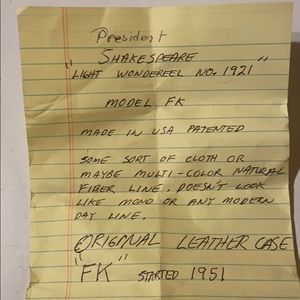 President
SHAKESPEARE
"LIGHT WONDEREEL NO. 1921"
MODEL FK
MADE IN USA PATENTED
SOME SORT OF CLOTH OR
MAYBE MULTI-COLOR NATURAL
FIBER LINE. DOESN'T LOOK
LIKE MONO OR ANY MODERN
DAY LINE.
ORIGINUAL LEATHER CASE
"FK" STARTED 1951